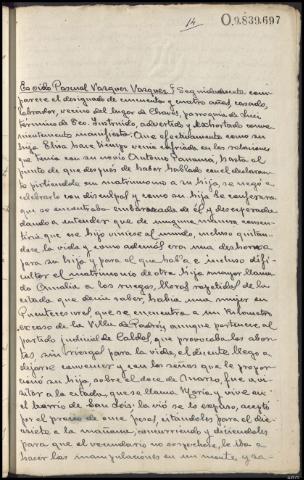 14
O.9.839.697
Oavido Pascual Vazquez Vazquez § Seguidamente com-
parece el designado de cincuenta y cuatro años, casado,
labrador, vecino del lugar de Chaves, parroquia de
término de Instruido, advertido y exhortado conve-
nientemente manifiesta: Que efectivamente como su
hija hace tiempo venia enfriada en las relaciones
que tenia con su novio Antonio hasta el
punto de que después de haber hablado con el declarante
pidiendole en matrimonio a su hija, se negó a
celebrarlo con disculpas y como su hija le confesara
que se encontraba embarazada de él y desesperada
dandole a entender que de ninguna manera consen-
tiria que ese hijo viniese al mundo, incluso quitan-
dose la vida y como además era una deshonra
para su hija y para el que habla e incluso difi-
cultar el matrimonio de otra hija mayor llama-
da Amalia a los ruegos, lloros repetidos de la
citada que decia saber, habia una mujer en
Puentecesures, que se encuentra a un kilometro
escaso de la Villa de Padrón aunque pertenece al
partido judicial de Caldas, que provocaba los abor-
tos, sin riesgos para la vida, el dicente llegó a
dejarse convencer y con las señas que le propor-
cionó su hija, sobre el doce de Marzo, fue a vi-
sitar a la citada, que se llama Maria y vive en
el barrio de San Lois: la vió se lo expuso, aceptó
por el precio de once pesos, citandoles para el die-
cisiete a la mañana, concurriendo y diciendoles
para que el vecindario no sospechase, le iba a
hacer las manipulaciones en un monte, y sa-